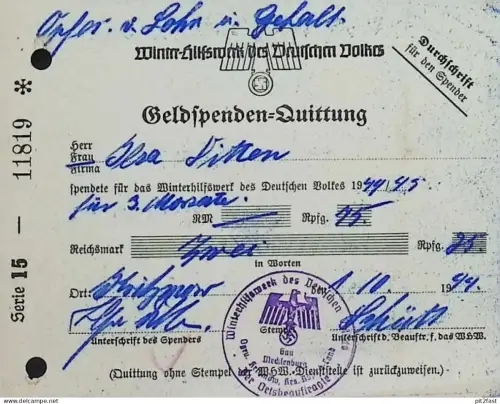 Opfer v. Lohn u. Gehalt.
Winter-Hilfswerk des Deutschen Volkes
Durchschrift
für den Spender
Geldspenden=Quittung
Herr
Frau
Firma
Ilsa
spendete für das Winterhilfswerk des Deutschen Volkes 1944/45
für 3. Monate.
RM Rpfg. 
Reichsmark Zwei Rpfg. 25.
in Worten
Ort: den 1. 10. 1944.
Unterschrift des Spenders
Stempel
Unterschrift d. Beauftr. f. das WHW.
(Quittung ohne Stempel der WHW-Dienststelle ist zurückzuweisen.)
Serie 15 — 11819 *
Winterhilfswerk des Deutschen
Gau
Mecklenburg
Der Ortsbeauftragte